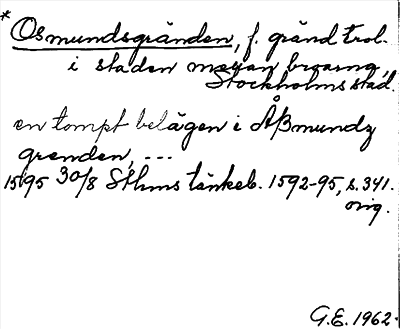 * Osmundsgränden, f. gränd trol.
i staden mellan broarna,
Stockholms stad.
en tompt belägen i Åßmundz
grenden, ---
1595 30/8 Sthms tänkeb. 1592-95, s. 341.
orig.
G.E. 1962.